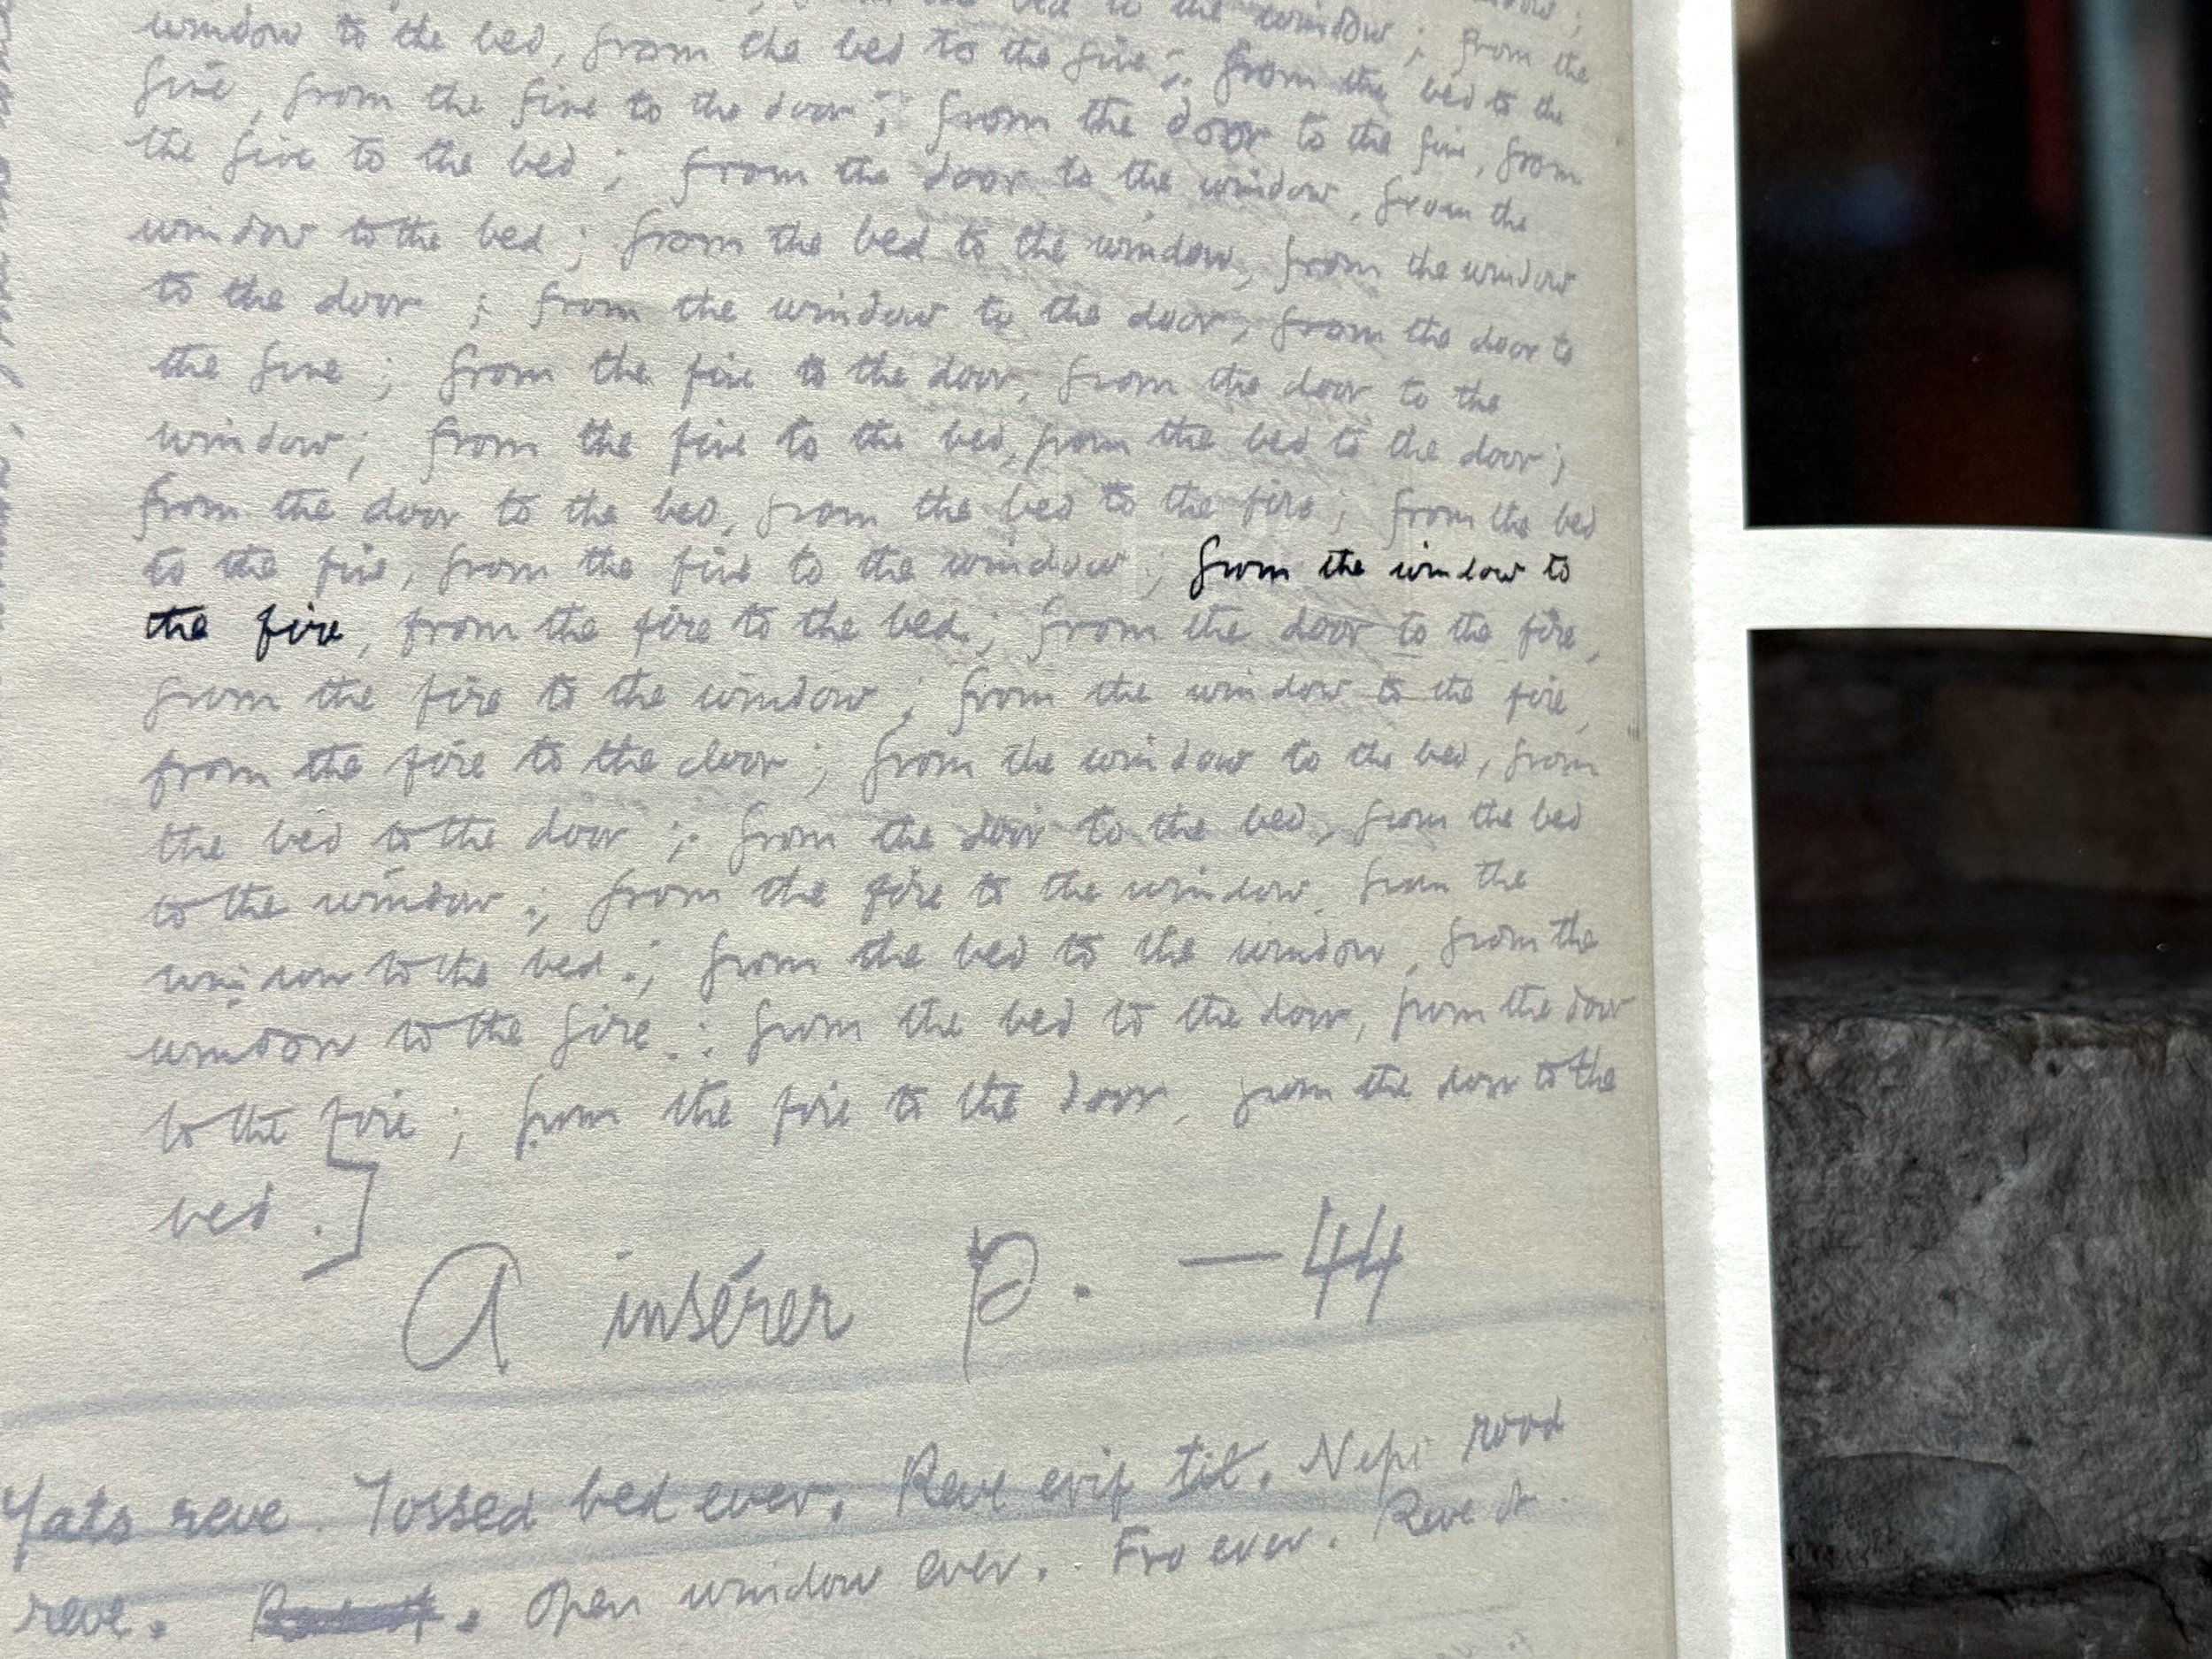 to the window ; from the
window to the bed, from the bed to the fire ; from the bed to the
fire, from the fire to the door ; from the door to the fire, from
the fire to the bed ; from the door to the window, from the
window to the bed ; from the bed to the window, from the window
to the door ; from the window to the door, from the door to
the fire ; from the fire to the door, from the door to the
window ; from the fire to the bed, from the bed to the door ;
from the door to the bed, from the bed to the fire ; from the bed
to the fire, from the fire to the window ; from the window to
the fire, from the fire to the bed ; from the door to the fire,
from the fire to the window ; from the window to the fire,
from the fire to the door ; from the window to the bed, from
the bed to the door ; from the door to the bed, from the bed
to the window ; from the fire to the window, from the
window to the bed ; from the bed to the window, from the
window to the fire ; from the bed to the door, from the door
to the fire ; from the fire to the door, from the door to the
bed .]
A insérer p. — 44
Yats reve. Tossed bed ever. Reve erif til. Nepo rood
reve. Open window ever. Fro ever. Reve ot.